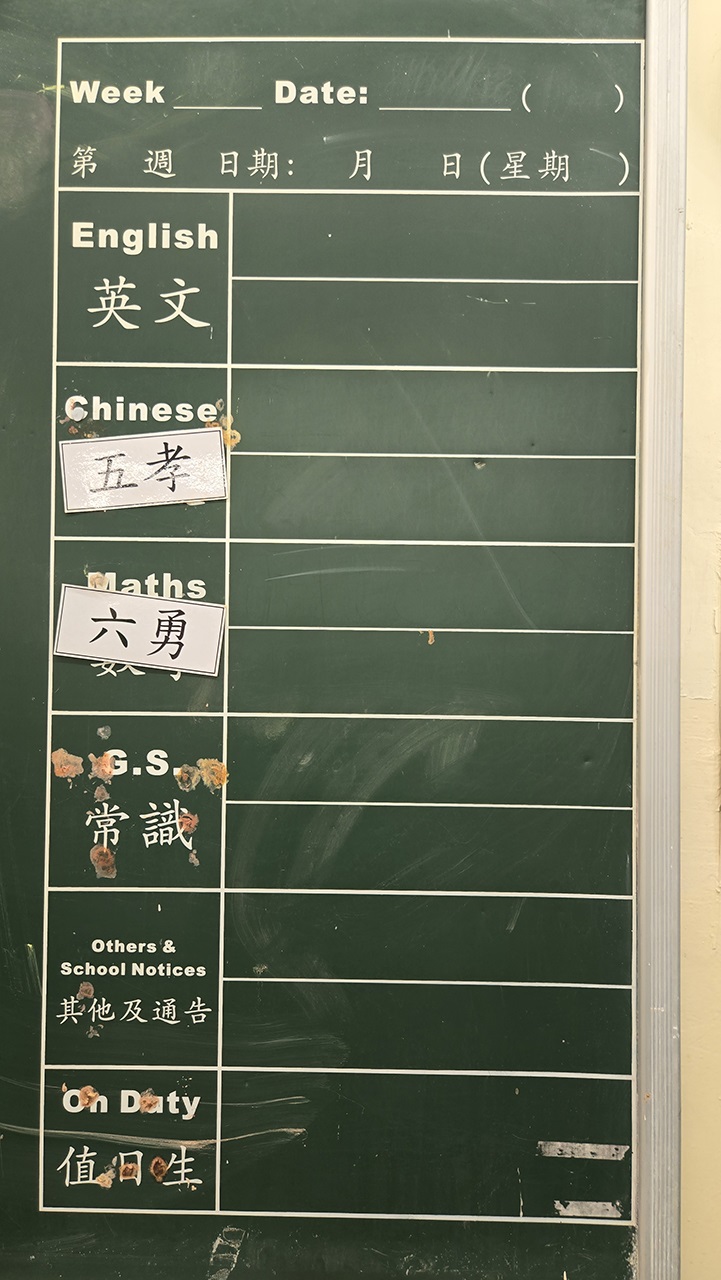 Week ____ Date: ________ ( )
第 週 日期: 月 日(星期 )
English
英文
Chinese
五孝
Maths
六勇
G.S.
常識
Others &
School Notices
其他及通告
On Duty
值日生